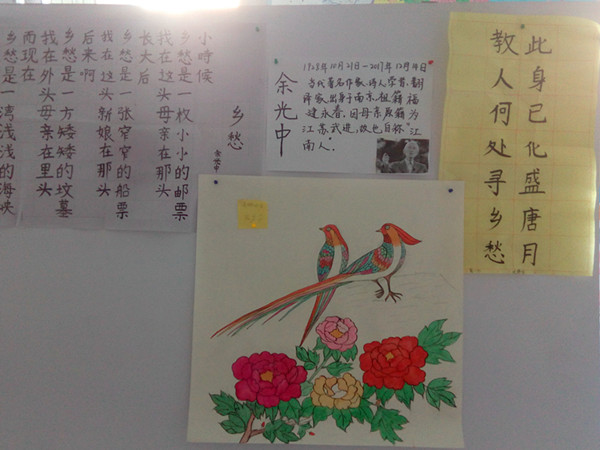 乡愁
余光中
小時候
乡愁是一枚小小的邮票
我在这头母亲在那头
长大后
乡愁是一张窄窄的船票
我在这头新娘在那头
后来啊
乡愁是一方矮矮的坟墓
我在外头母亲在里头
而现在
乡愁是一湾浅浅的海峡
余光中
1928年10月21日—2017年12月14日
当代著名作家、诗人、学者、翻
译家,出身于南京,祖籍福
建永春。因母亲原籍为
江苏武进,故也自称“江
南人”。
此身已化盛唐月
教人何处寻乡愁